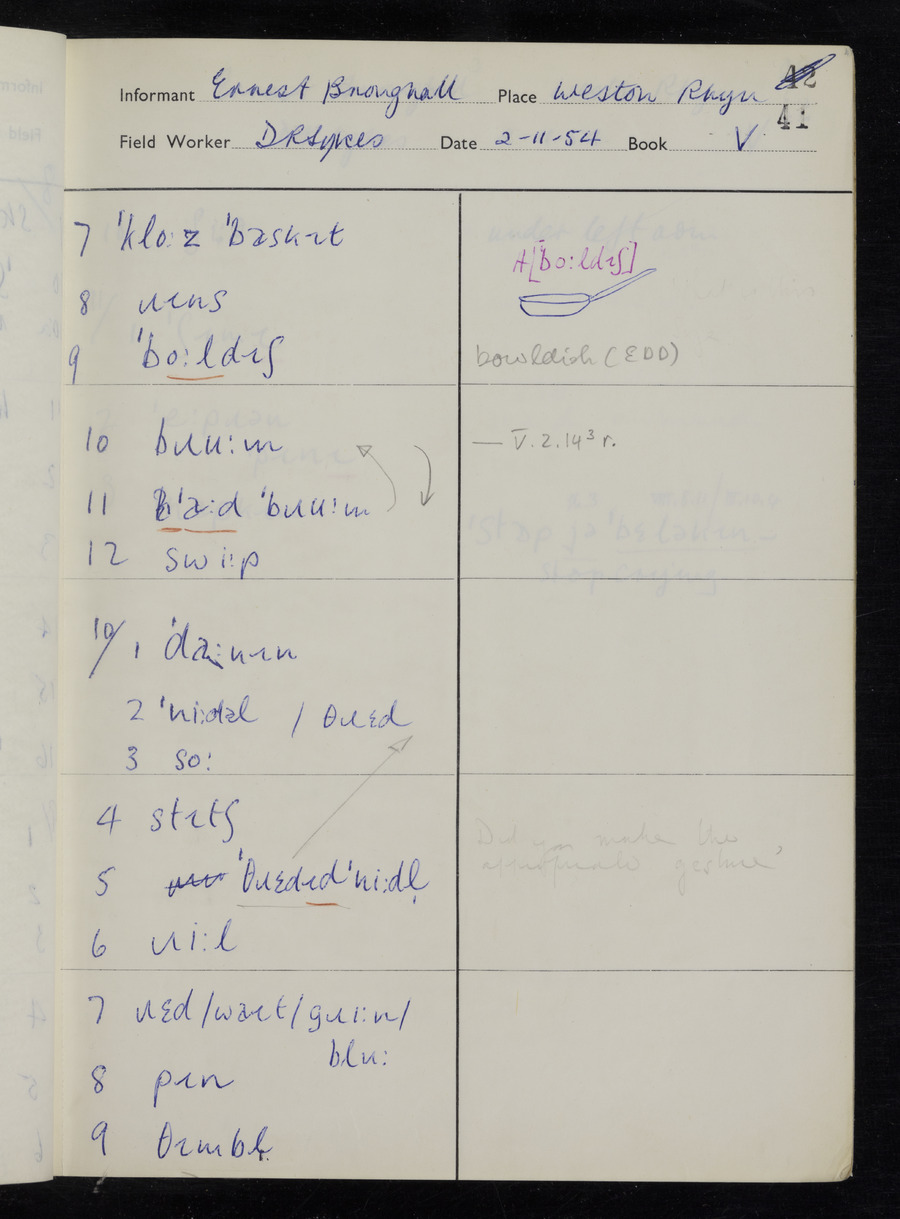 Informant Ernest Broughall Place Weston Rhyn 42
41
Field Worker D R Sykes Date 2-11-54 Book V
7 ˈkloːz ˈbaskɪt
8 ɹɪns
9 ˈboːldɪʃ
A[ˈboːldɪʃ]
bowldish (EDD)
10 bɹuːm
— V.2.14³ r.
11 ˈbuːm
12 swiːp
10/1 ˈdaːnɪn
2 ˈniːdəl / θɹɛd
3 soː
4 stɪtʃ
5 ˈθɹɛdɪd ˈniːdl̩
Did you make the
appropriate gesture?
6 ɹiːl
7 ɹɛd / waɪt / gɹiːn /
bluː
8 pɪn
9 θɪmbl̩